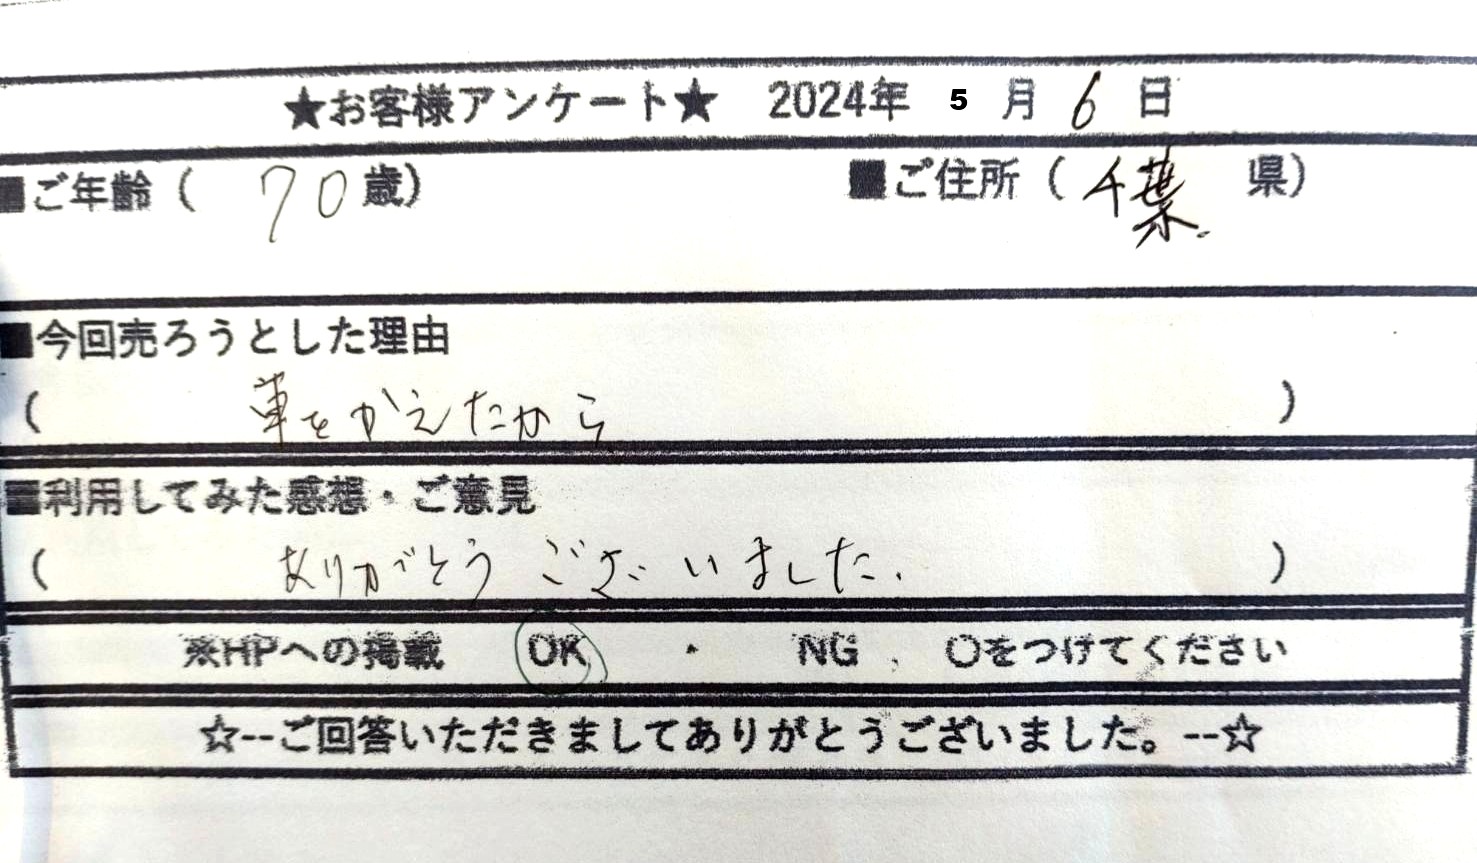 ★お客様アンケート★ 2024年 5 月 6 日
■ご年齢( 70 歳) ■ご住所( 千葉 県)
■今回売ろうとした理由
( 車をかえたから )
■利用してみた感想・ご意見
( ありがとうございました. )
※HPへの掲載 OK ・ NG 、 〇をつけてください
☆--ご回答いただきましてありがとうございました。--☆